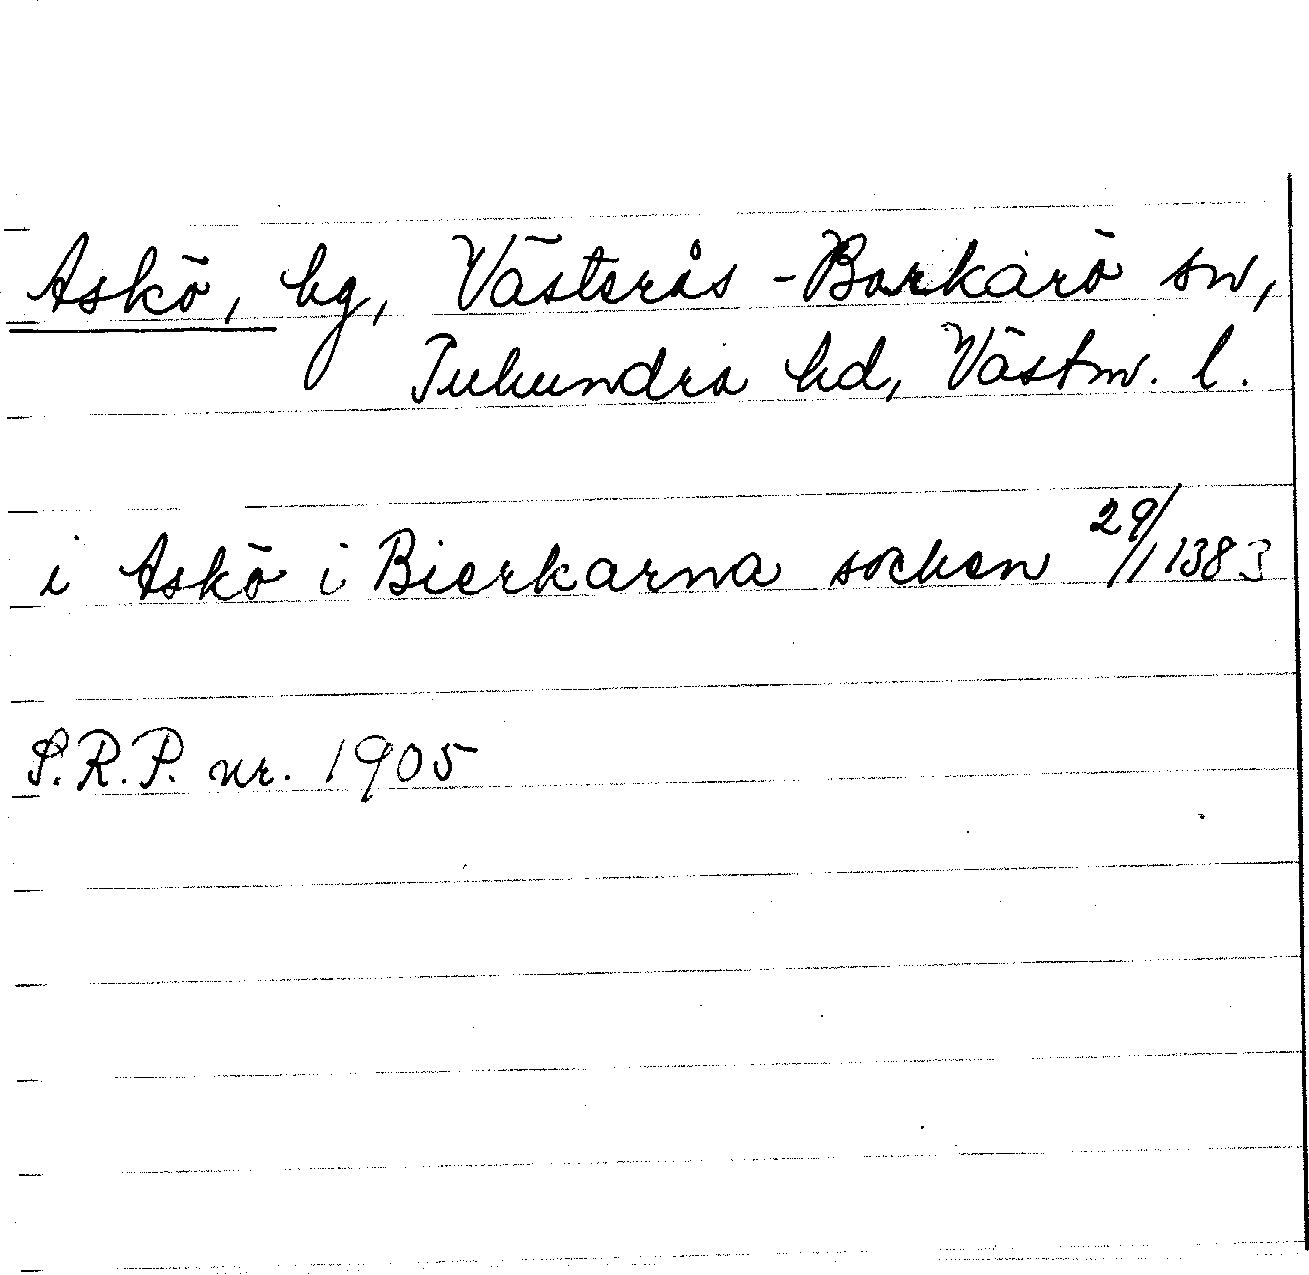 Askö, hg, Västerås-Barkarö sn,
Tuhundra hd, Västm. l.
i Askö i Bierkarna socken 29/1 1383
S.R.P. nr. 1905